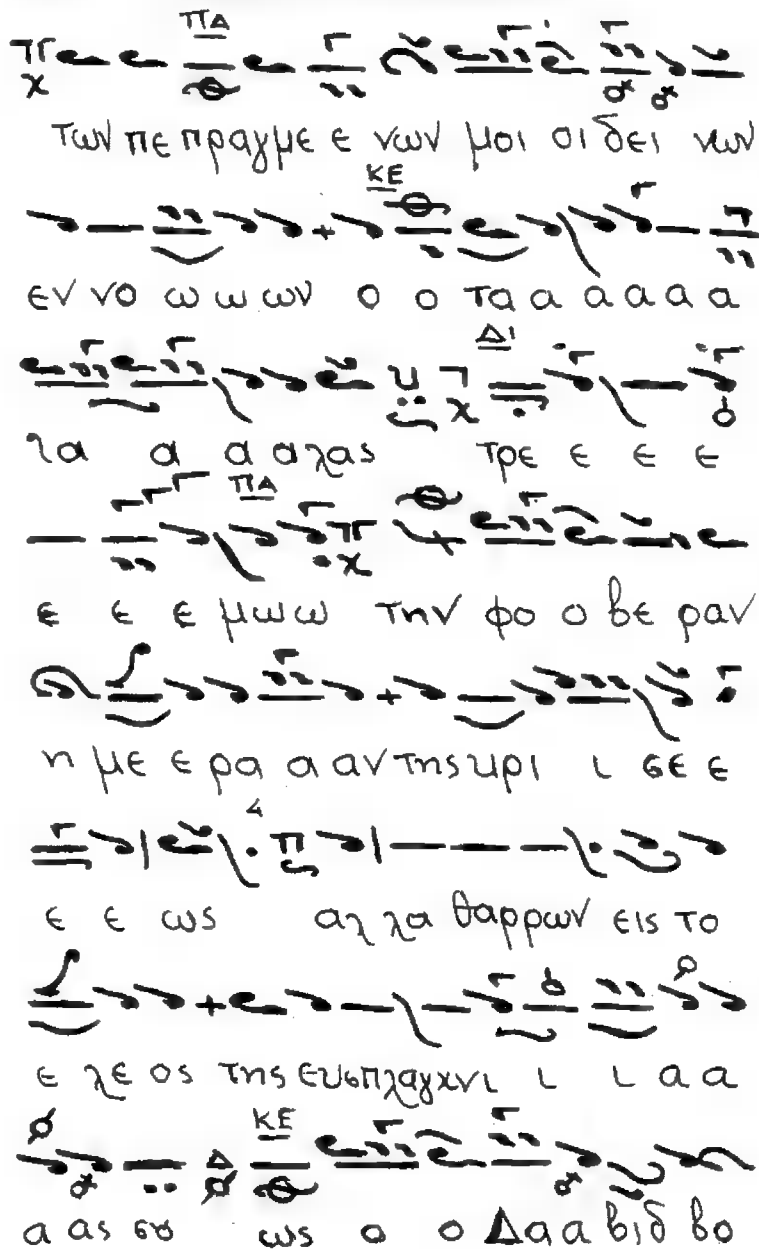 ΠΑ
Των πε πραγμε ε νων μοι οι δει νων
ΚΕ
εν νο ω ω ων ο ο τα α α α α α
Δι
λα α α α λας τρε ε ε ε
ΠΑ
ε ε ε μω ω την φο ο βε ραν
η με ε ρα α αν της κρι ι σε ε
4
ε ε ως αλ λα θαρρων εις το
ε λε ος της ευσπλαγχνι ι ι α α
ΚΕ
α ας σȣ ως ο ο Δα α βιδ βο